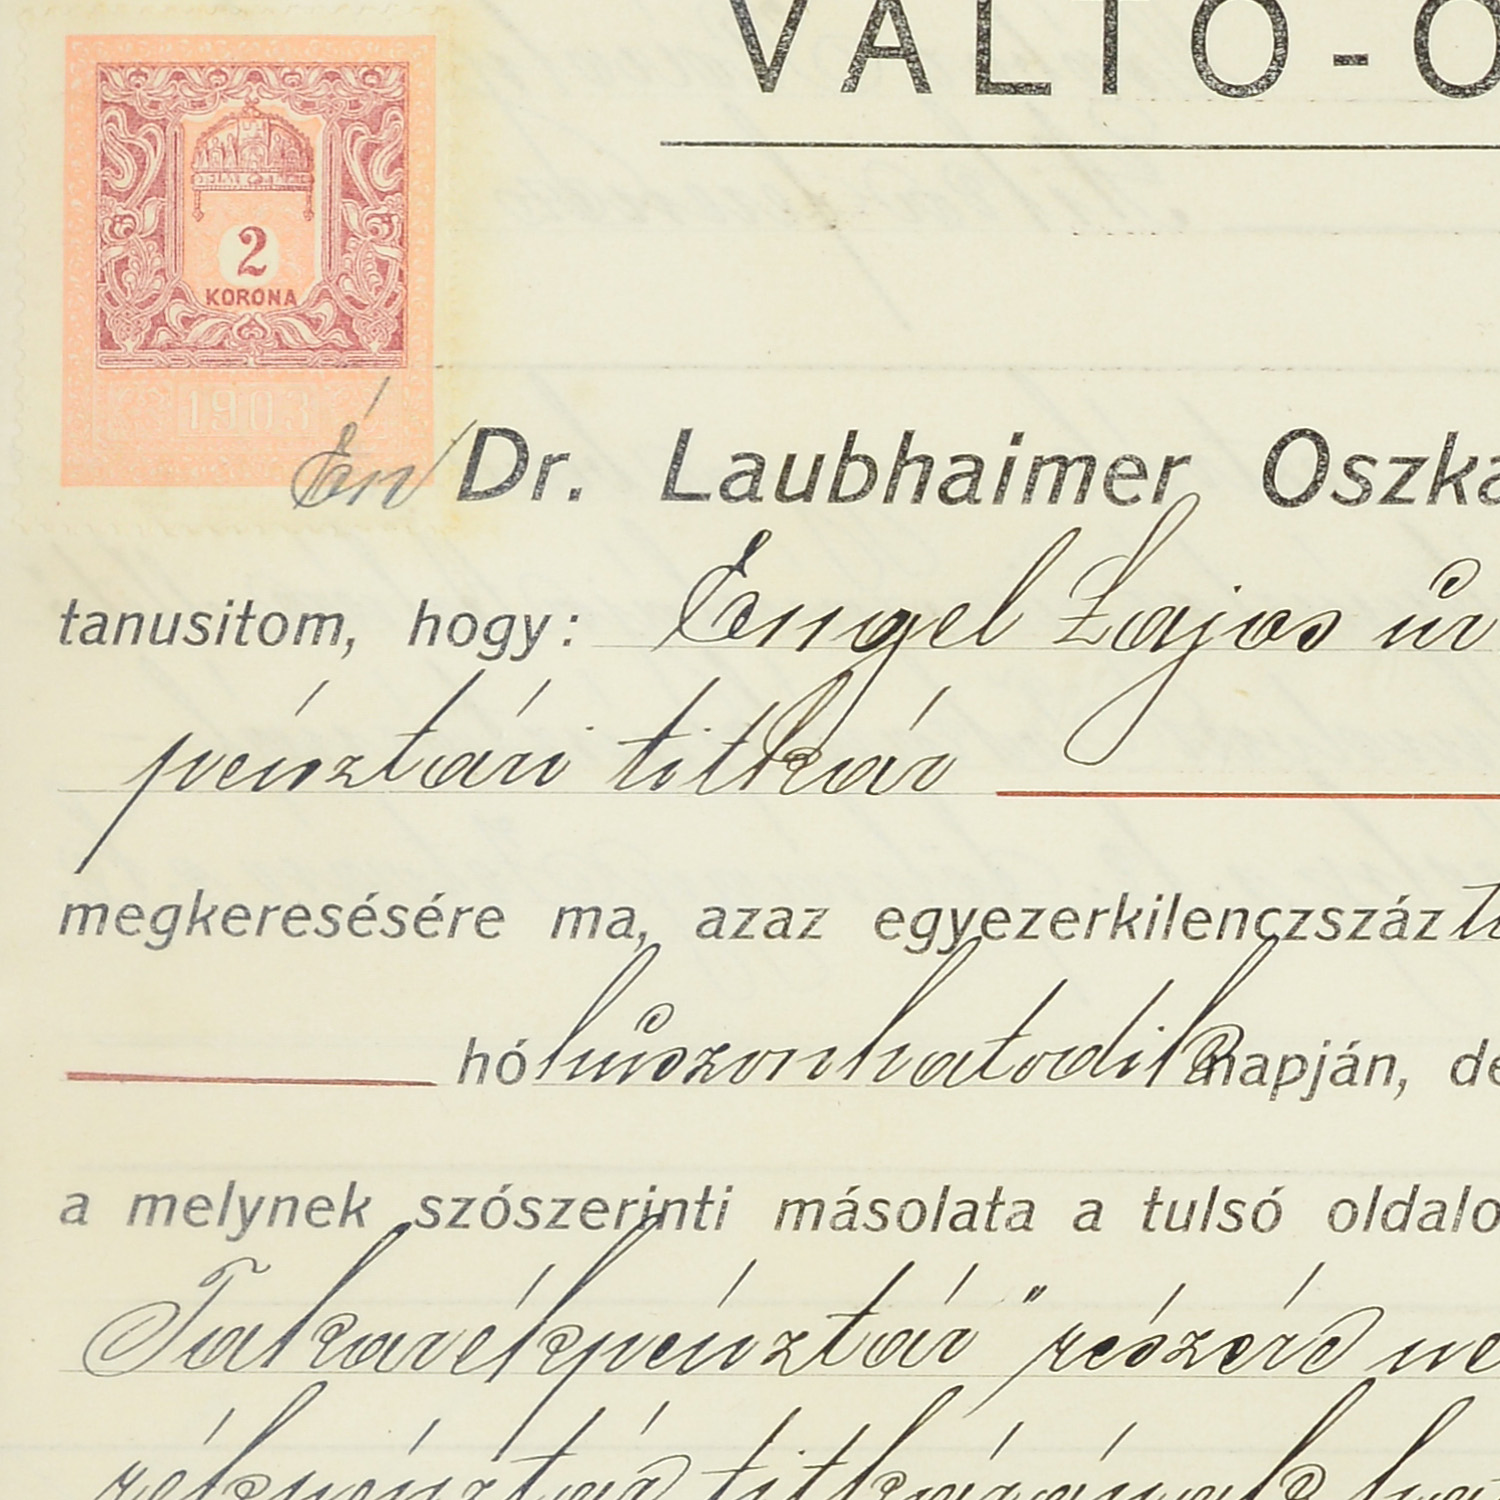 VÁLTÓ-Ó
2
KORONA
1903
Én Dr. Laubhaimer Oszká
tanusitom, hogy: Engel Lajos úr
pénztári titkár
megkeresésére ma, azaz egyezerkilenczszáz ti
hó húszonhatodik napján, de
a melynek szószerinti másolata a tulsó oldalo
Takarékpénztár" részére ne
rékpénztár titkárának